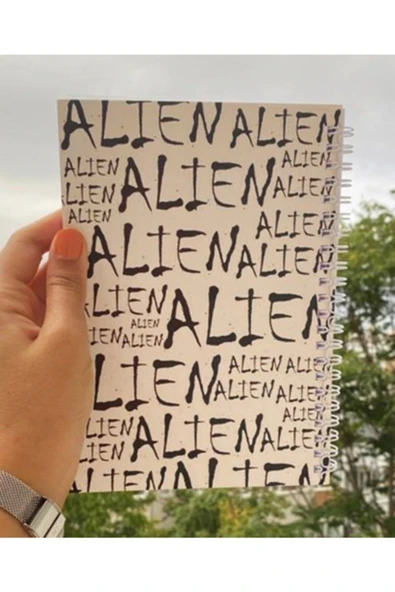 ALIEN ALIEN
ALIEN ALIEN ALIEN
LIEN ALIEN
ALIEN ALIEN
ALIEN ALIEN
LIEN ALIEN
ALIEN
IEN ALIEN
LIEN ALIEN ALIE
ALIEN ALIEN
ALIE
LIEN ALIEN ALIE
LIEN
ALIEN ALIEN